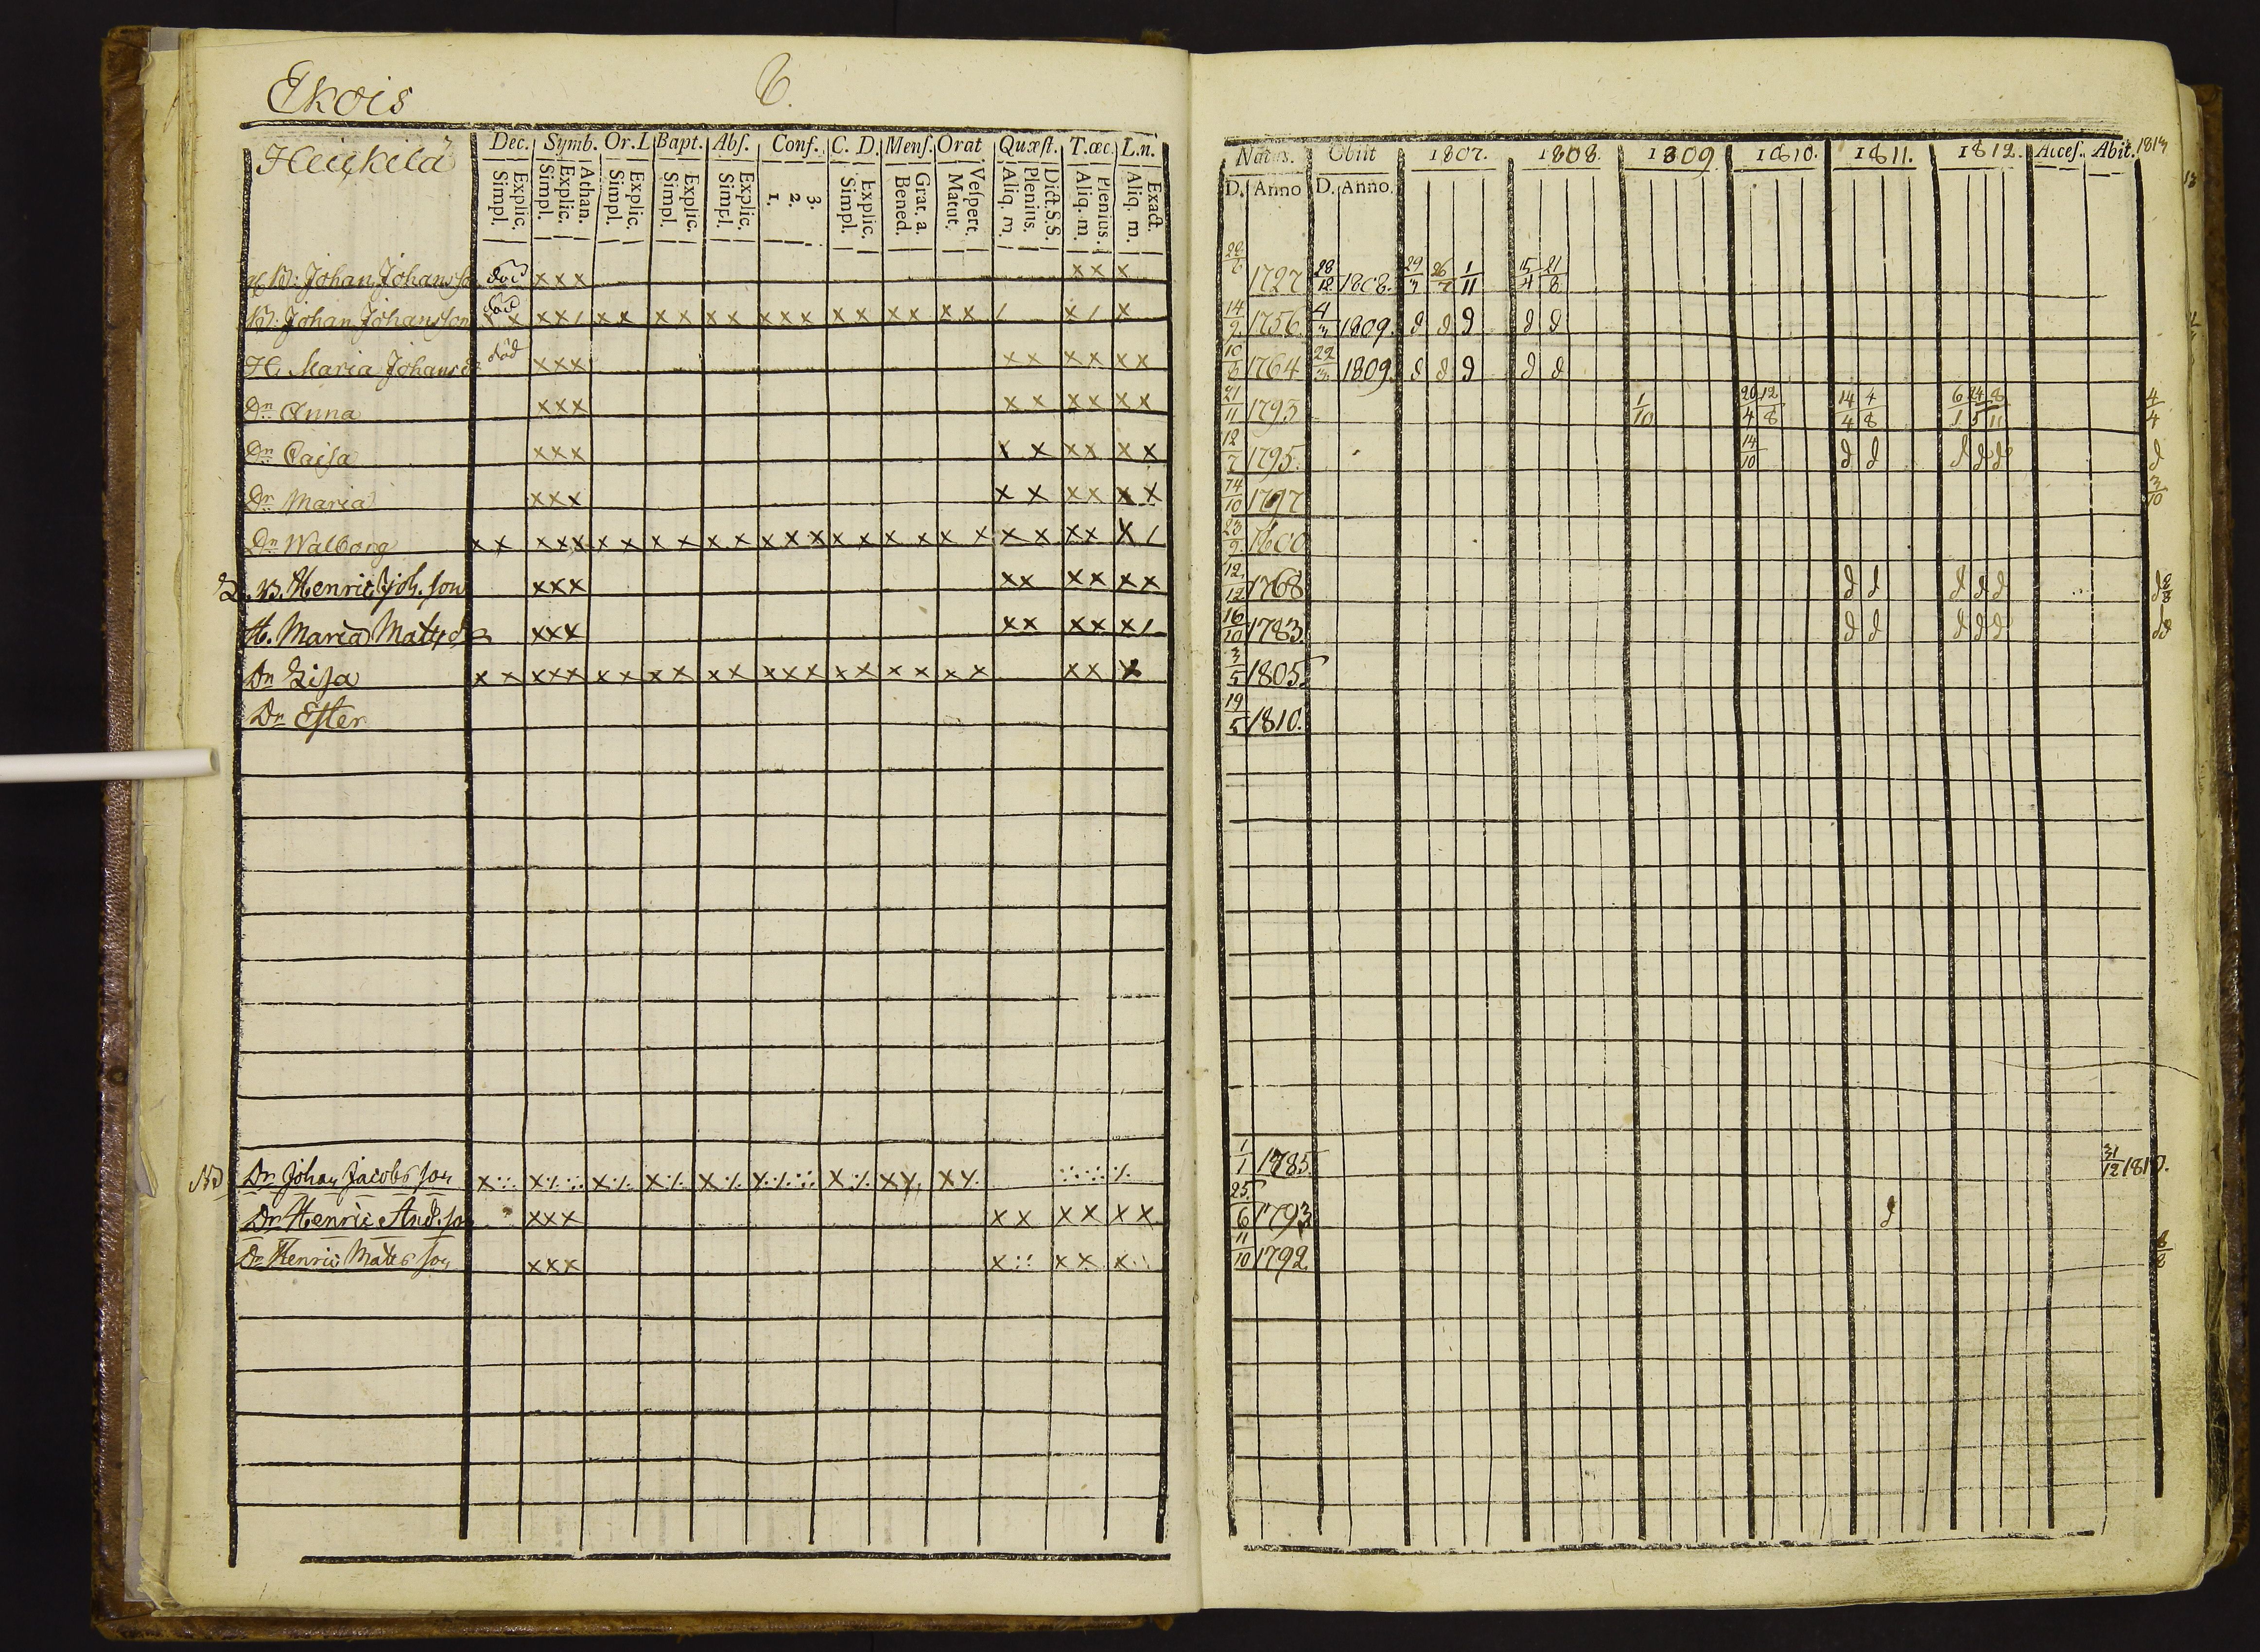 Ekois 6.
Heickilä
Dec. Symb. Or. L Bapt. Abſ. Conf. C. D. Menſ. Orat Quæſt. T. œc. L. n.
Explic. Simpl. Athan. Explic. Simpl. Explic. Simpl. Explic. Simpl. Explic. Simpl. 3. 2. 1. Explic. Simpl. Grat. a. Bened. Veſpert. Matut. Dict. S. S. Plenius. Aliq. m. Plenius. Aliq. m. Exact. Aliq. m.
Johan Johansso död x x x x x x
B: Johan Johansson död x x x x / x x x x x x x x x x x x x x x x / x / x
H. Maria Johans d död x x x x x x x x x
Dr. Anna x x x x x x x x x
Dr. Caisa x x x x x x x x x
Dr. Maria x x x x x x x x x
Dr. Walborg x x x x x x x x x x x x x x x x x x x x x x x x x /
2. B. Henric Joh. son x x x x x x x x x
H. Maria Mats d x x x x x x x x /
Dr. Lisa x x x x x x x x x x x x x x x x x x x x x x x
Dr. Ester
Dr. Johan Jacobs son
Dr. Henric And. so x x x x x x x x x
Dr. Henric Mats son x x x x x x x
Natus. Obiit 1807. 1808. 1809 1810. 1811. 1812. Acceſ. Abit. 1813
D. Anno D. Anno.
1727 28/12 1808. 29/3 26/7 1/11 15/4 21/8
14/2 1756 4/3 1809. d d d d d
1764 22/3 1809. d d d d d
21/11 1793 1/10 20/4 12/8 14/4 4/8 6/1 24/5 8/11 4/4
12/7 1795. 14/10 d d d d d d
14/10 1797 3/10
23/9 1800
12/12 1768 d d d d d d
16/10 1783. d d d d d d d
3/5 1805.
19/5 1810.
1/1 1785. 31/12 1810.
25/6 1793 d
11/10 1792